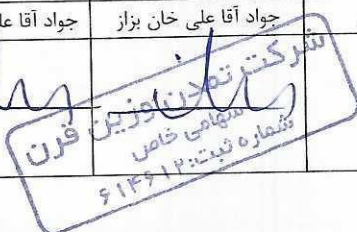 جواد آقا علی خان بزاز
جواد آقا عل
شرکت تمدن وزین قرن
سهامی خاص
شماره ثبت: ۶۱۴۶۱۲